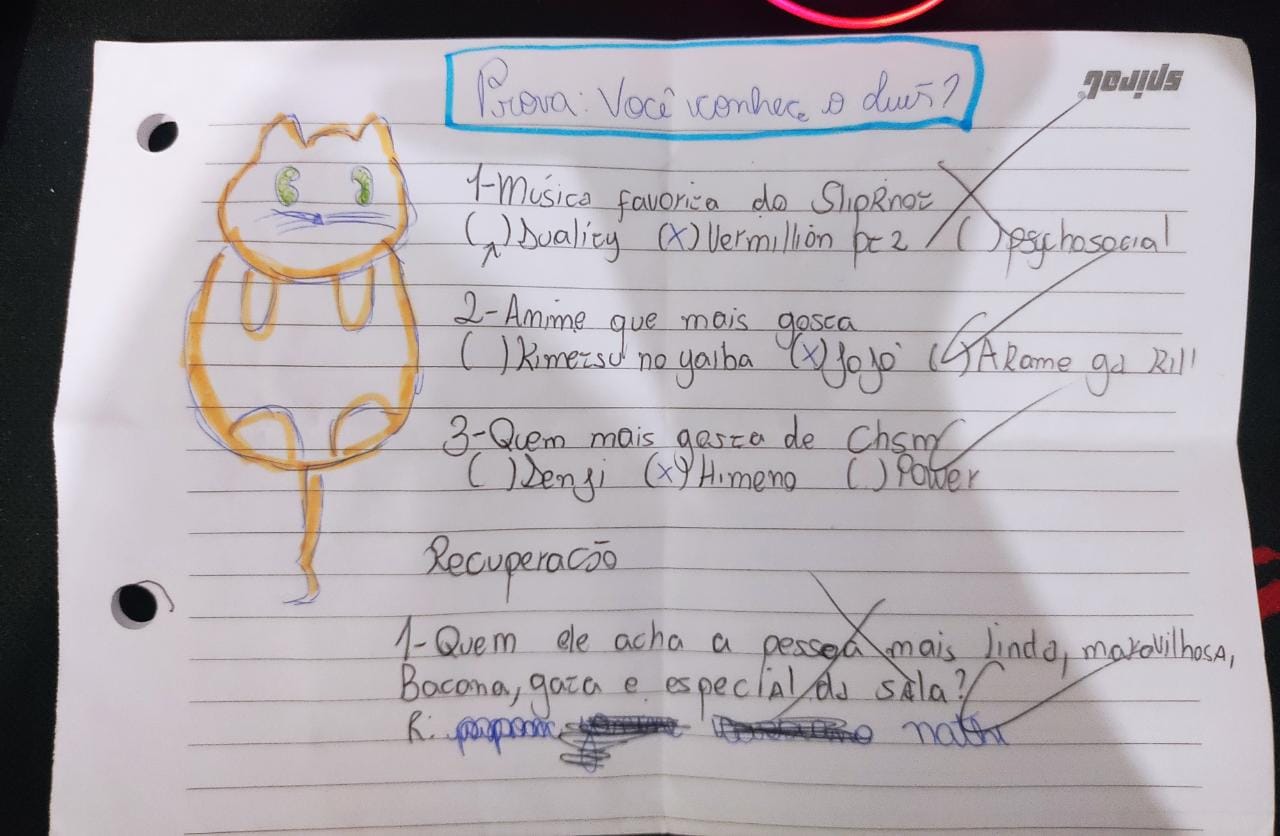 Prova: Você conhece o Luis?
spiral
1-Música favorita do Slipknot
( )Duality (X)Vermillion pt 2 ( )psychosocial
2-Anime que mais gosta
( )Kimetsu no yaiba (x)Jojo ( )Akame ga Kill
3-Quem mais gosta de Chsm
( )Denji (x)Himeno ( )Power
Recuperacão
1-Quem ele acha a pessoa mais linda, maravilhosa,
Bacana, gata e especial da sala?
R: